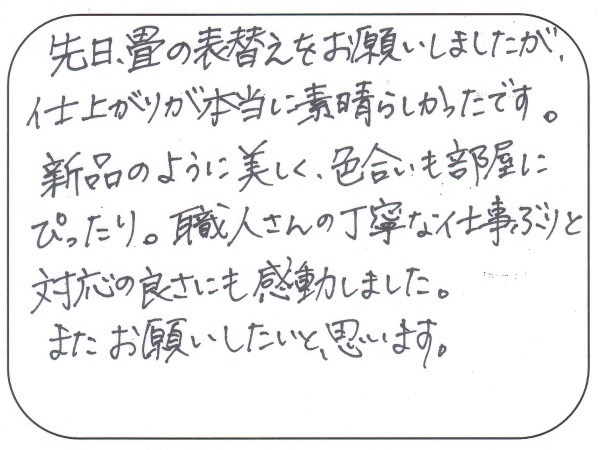 先日、畳の表替えをお願いしましたが、
仕上がりが本当に素晴らしかったです。
新品のように美しく、色合いも部屋に
ぴったり。職人さんの丁寧な仕事ぶりと
対応の良さにも感動しました。
またお願いしたいと、思います。